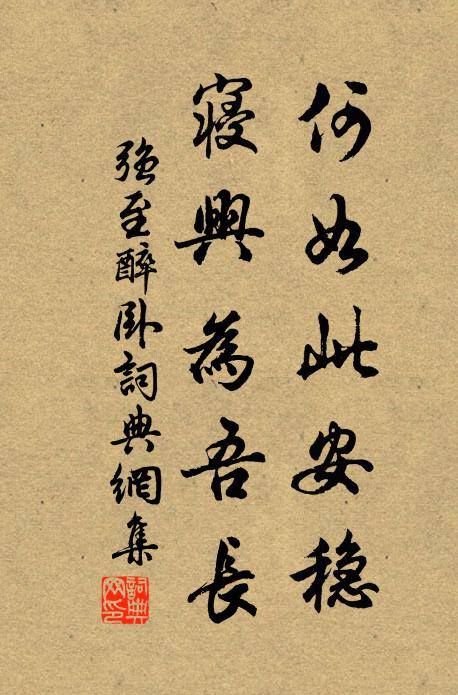 何如此安穩
寢興為吾長
強至醉臥詞典網集
詞典網印